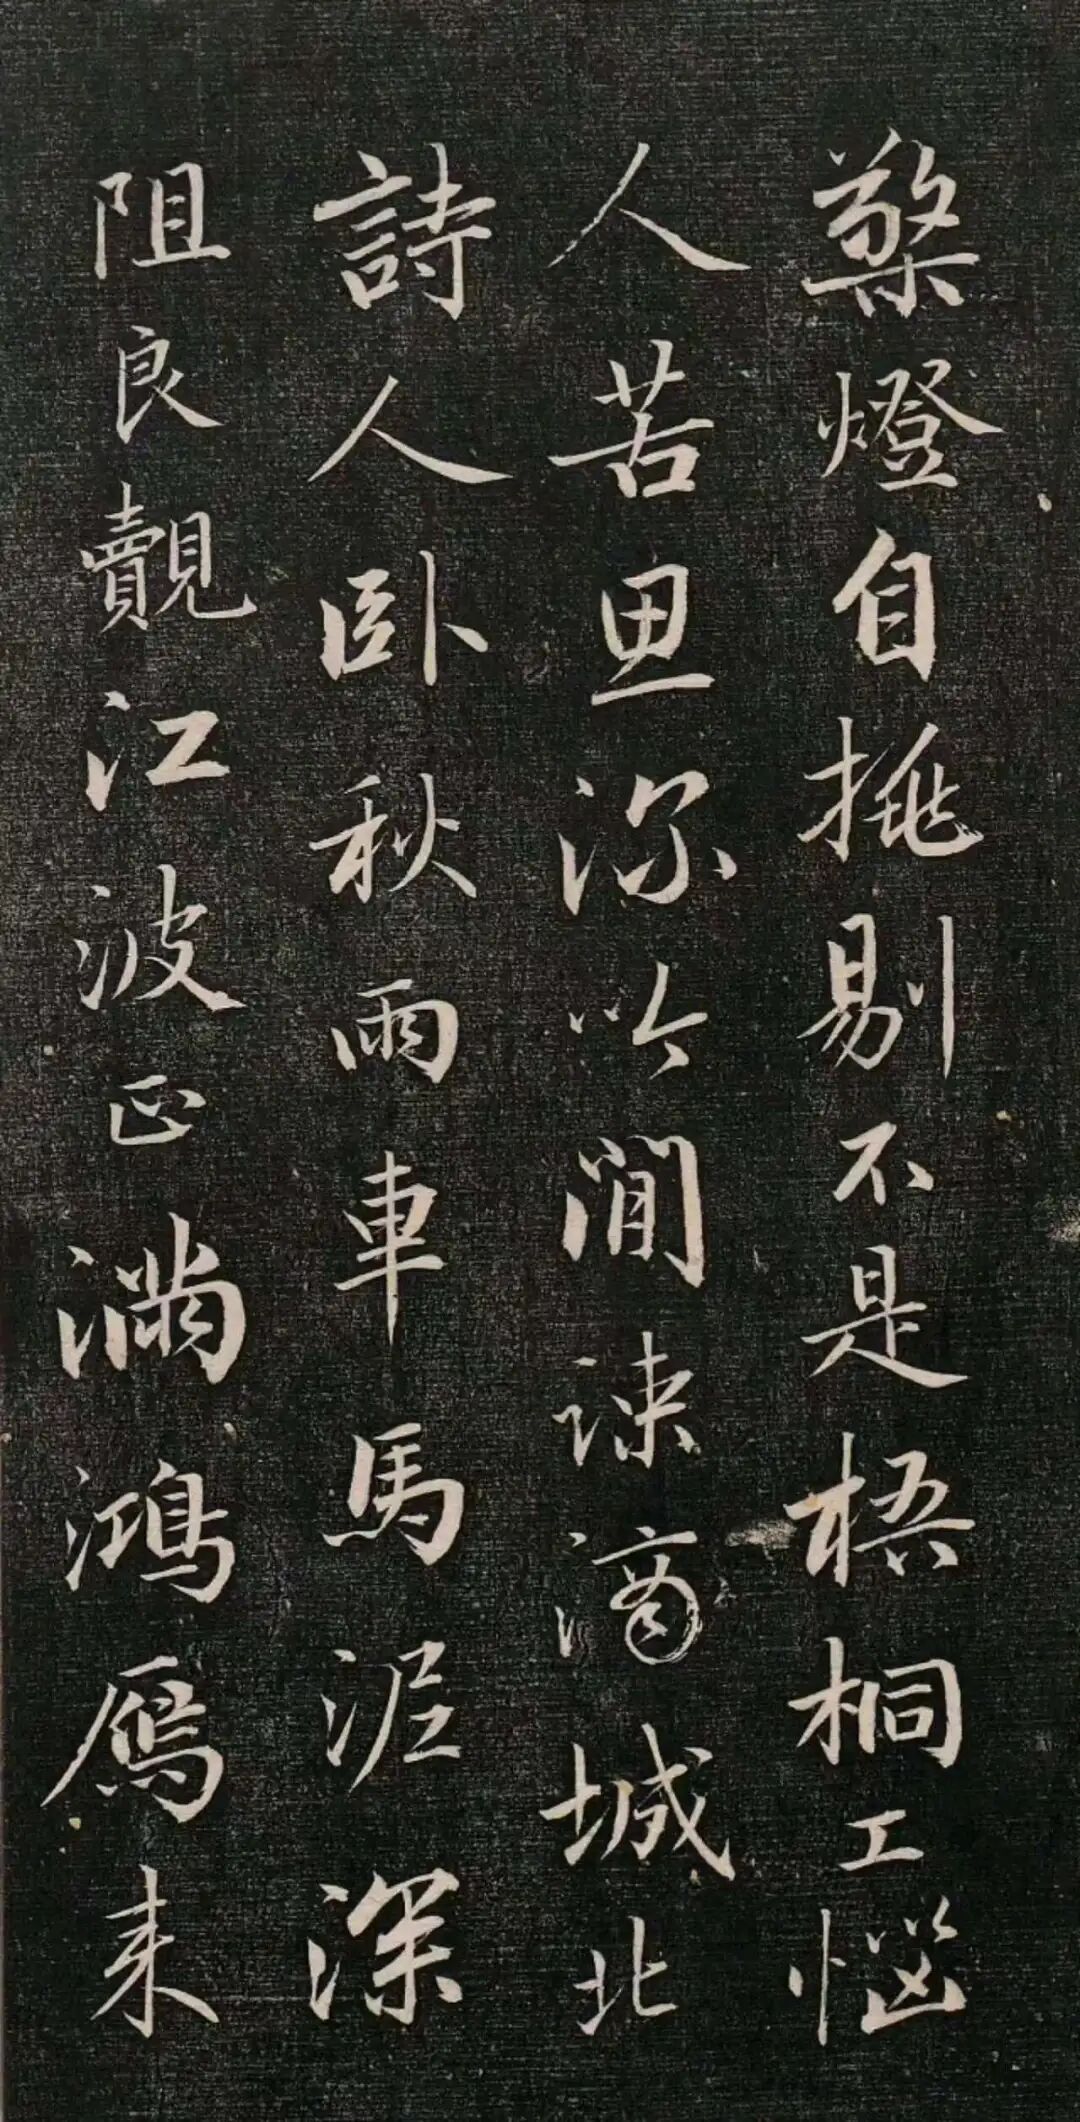 檠燈自挑剔不是梧桐工惱
人苦思冷間疎滴城北
詩人卧秋雨車馬泥深
阻良覿江波正滿鴻鴈来